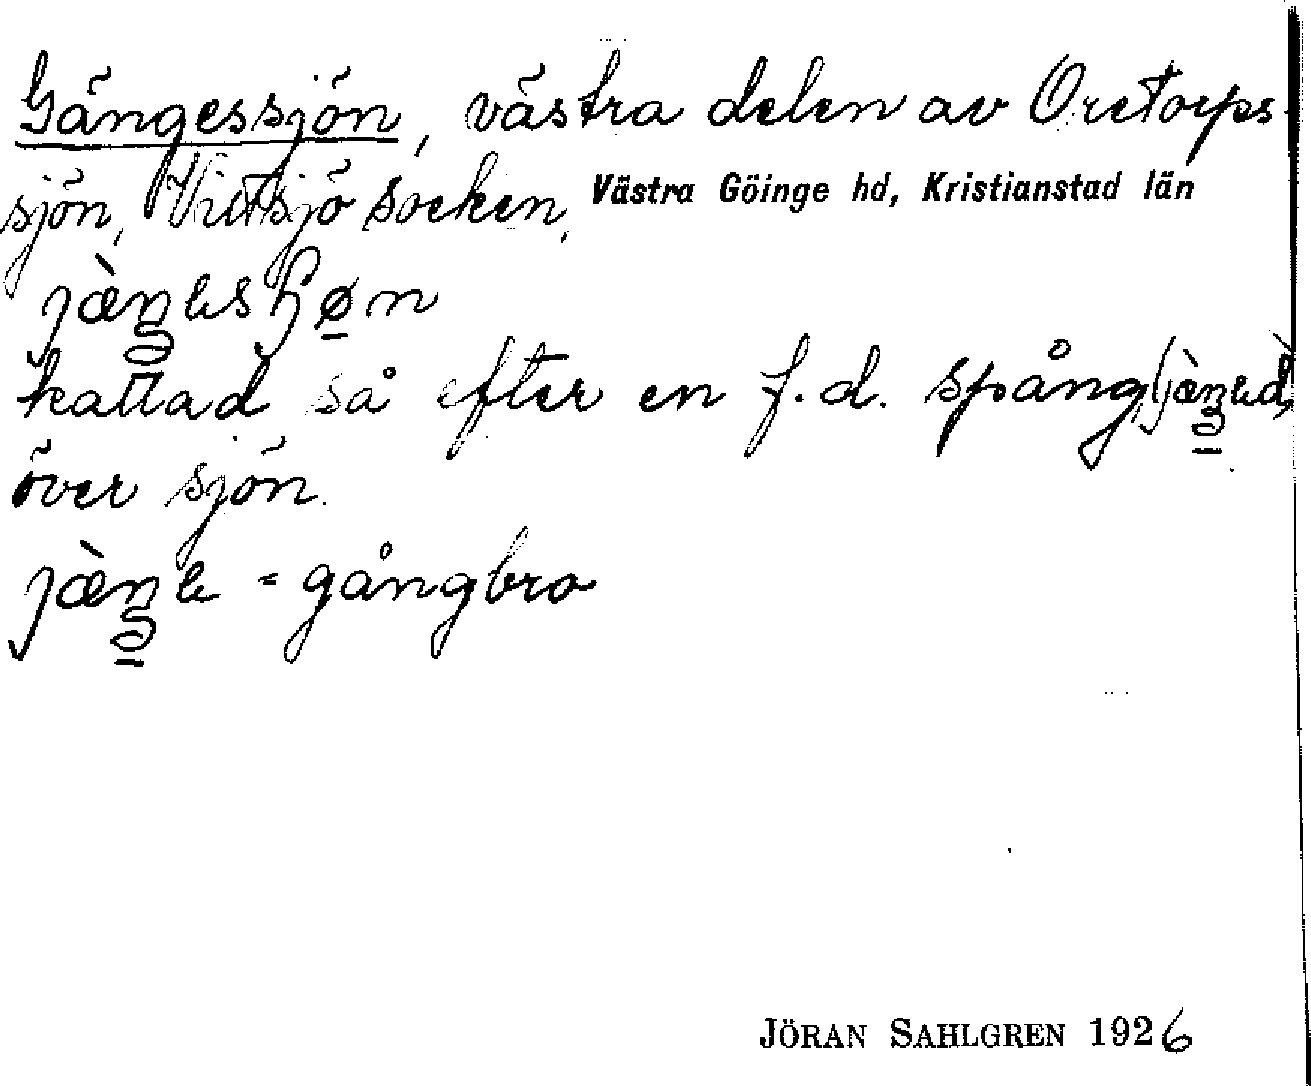 Gängessjön, västra delen av Oretorps-
sjön, Vittsjö socken, Västra Göinge hd, Kristianstad län
jæ̀ŋes ɧøn
kallad så efter en f.d. spång (jæ̀ŋed)
över sjön.
jæ̀ŋe = gångbro
JÖRAN SAHLGREN 1926